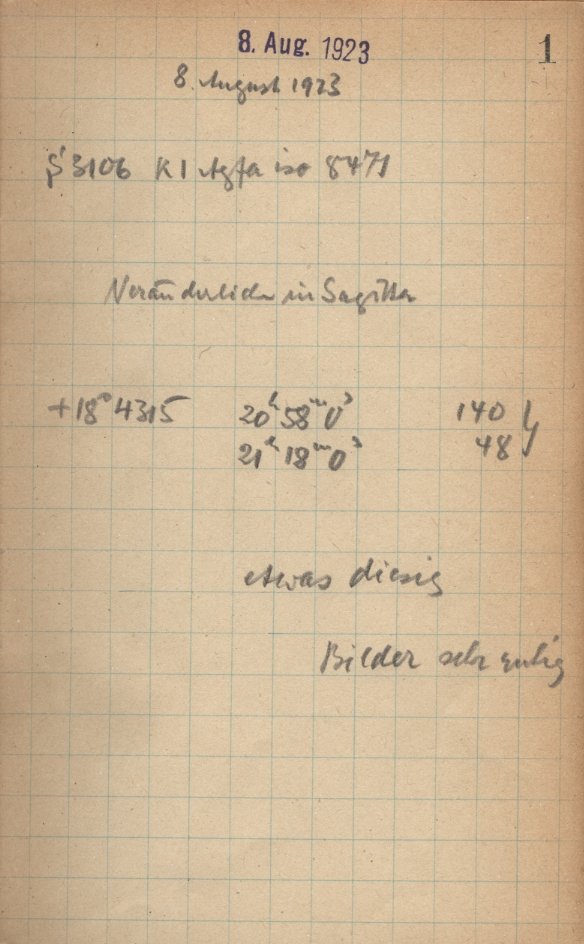 8. Aug. 1923
1
8. August 1923
S 3106 K I Agfa iso 8471
Veränderliche in Sagitta
+18° 4315 20ʰ 58ᵐ 0ˢ 140
21ʰ 18ᵐ 0ˢ 48
etwas diesig
Bilder sehr ruhig